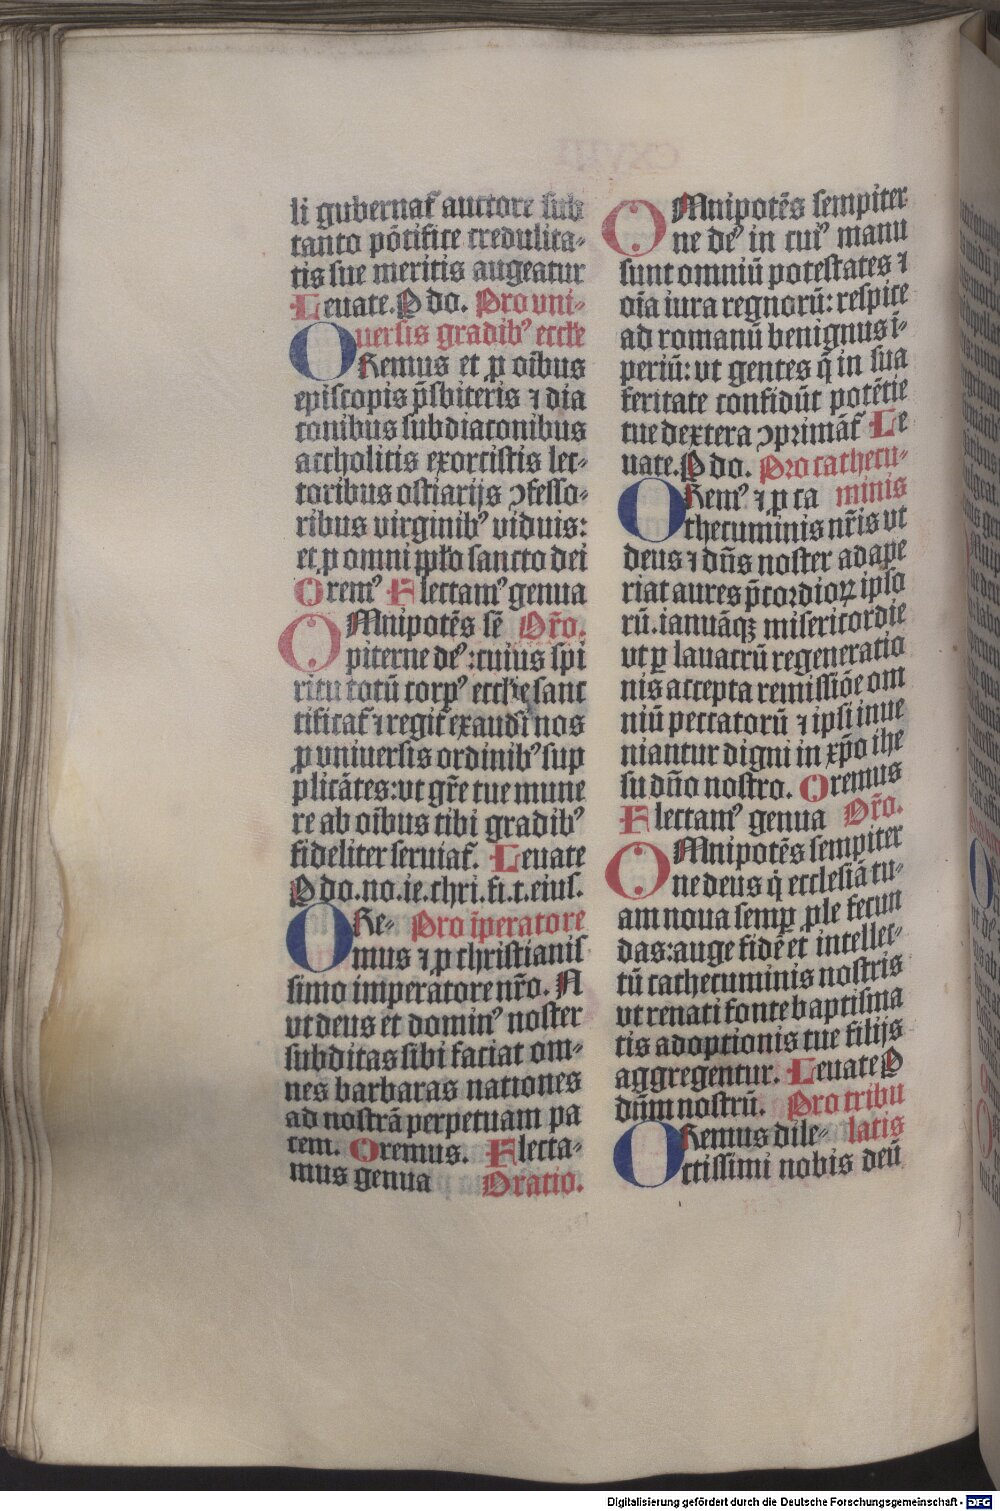 li gubernat̃ auctore sub
tanto põtifice credulita-
tis sue meritis augeatur
Leuate. P do. Pro vni-
uersis gradibꝰ eccl̃ie
ORemus et ꝓ oĩbus
episcopis p̃sbiteris ⁊ dia
conibus subdiaconibus
accholitis exorcistis lec-
toribus ostiarijs ꝯfesso-
ribus virginibꝰ viduis:
et ꝓ omni pp̃lo sancto dei
Oremꝰ Flectamꝰ genua
OMnipotẽs sẽ Or̃o.
piterne deꝰ: cuius spi
ritu totũ corpꝰ eccl̃ie sanc
tificat̃ ⁊ regit̃ exaudi nos
ꝓ vniuersis ordinibꝰ sup
plicãtes: vt gr̃e tue mune
re ab oĩbus tibi gradibꝰ
fideliter seruiat̃. Leuate
P do. no. ie. chri. fi. t. eius.
ORe- Pro ĩperatore
mus ⁊ ꝓ christianis
simo imperatore nr̃o. N
vt deus et dominꝰ noster
subditas sibi faciat om-
nes barbaras nationes
ad nostrã perpetuam pa
cem. Oremus. Flecta-
mus genua Oratio.
OMnipotẽs sempiter
ne deꝰ in cuiꝰ manu
sunt omniũ potestates ⁊
oĩa iura regnorũ: respice
ad romanũ benignus ĩ-
periũ: vt gentes q̃ in sua
feritate confidũt potẽtie
tue dextera ꝯprimãt̃ Le
uate. P do. Pro cathecu-
ORemꝰ ⁊ ꝓ ca minis
thecuminis nr̃is vt
deus ⁊ dñs noster adape
riat aures p̃cordioꝝ ipso
rũ. ianuãqꝫ misericordie
vt ꝑ lauacrũ regeneratio
nis accepta remissiõe om
niũ peccatorũ ⁊ ipsi inue
niantur digni in xp̃o ihe
su dño nostro. Oremus
Flectamꝰ genua Or̃o.
OMnipotẽs sempiter
ne deus q̇ ecclesiã tu-
am noua semꝑ ꝓle fecun
das: auge fidẽ et intellec-
tũ cathecuminis nostris
vt renati fonte baptisma
tis adoptionis tue filijs
aggregentur. Leuate P
dñm nostrũ. Pro tribu
ORemus dile- latis
ctissimi nobis deũ
CXVIII
Digitalisierung gefördert durch die Deutsche Forschungsgemeinschaft - DFG